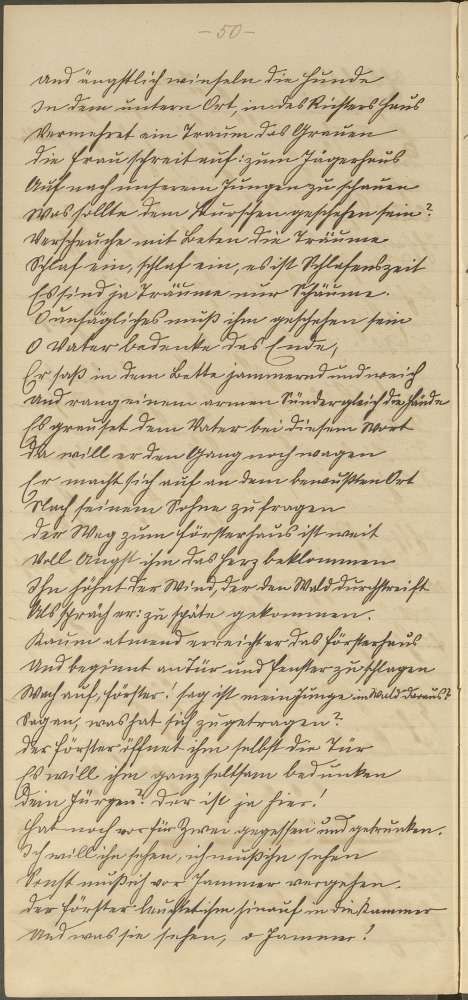 - 50 -
und ängstlich winseln die Hunde
In dem untern Ort, in des Küsters Haus
Vermehret ein Traum das Grauen
die Frau schreit auf: zum Jägerhaus
Auf nach unserem Jungen zu schauen
Was sollte dem Burschen geschehen sein?
Verscheuche mit Beten die Träume
Schlaf ein, schlaf ein, es ist Schlafenszeit
Es sind ja Träume nur Schäume.
O unsägliches muß ihm geschehen sein
O Vater bedenke das Ende,
Er saß in dem Bette jammernd und weich
und rang einem armen Sünder gleich die Hände
Es grauset dem Vater bei diesem Wort
da will er den Gang noch wagen
Er macht sich auf an dem bewußten Ort
Nach seinem Sohne zu fragen
der Weg zum Försterhaus ist weit
Voll Angst ihm das Herz beklommen
Ihn höhnt der Wind, der den Wald durchstreift
Als spräch er: zu späte gekommen.
Kaum atmend erreicht er das Försterhaus
Und beginnt an Tür und Fenster zu schlagen
Wach auf, Förster! sag ist mein Junge im Wald
Sagen, was hat sich zugetragen?
der Förster öffnet ihm selbst die Tür
Es will ihm ganz seltsam bedünken
dein Jürgen? der ist ja hier!
Hat noch vor für Zwei gegessen und getrunken.
Ich will ihn sehen, ich muß ihn sehen
Sonst muß ich vor Jammer vergehen.
der Förster leuchtet ihm hinauf in die Kammer
Und was sie sehen, o Jammer!